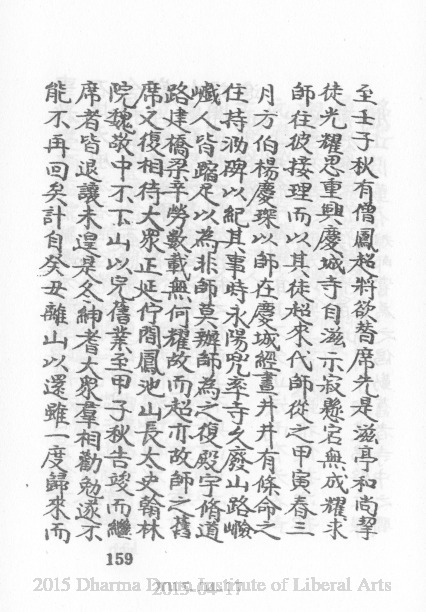 至壬子秋有僧鳳超將欲替席先是滋亭和尚挈
徒光耀思重興慶城寺自滋示寂懸宕無成耀求
師在彼接理而以其徒超來代師從之甲寅春三
月方伯楊慶琛以師在慶城經畫井井有條命之
住持泐碑以紀其事時永陽兜率寺久廢山路嶮
巇人皆踏足以為非師莫辦師為之復殿宇脩道
路建橋梁辛勞數載無何耀故而超亦故師之舊
席又復相待大眾正延佇間鳳池山長太史翰林
院魏敬中不下山以完舊業至甲子秋告竣而繼
席者皆退讓未遑是冬紳耆大眾羣相勸勉遂不
能不再回矣計自癸丑離山以還雖一度歸來而
159
2015 Dharma Drum Institute of Liberal Arts
2015-04-17